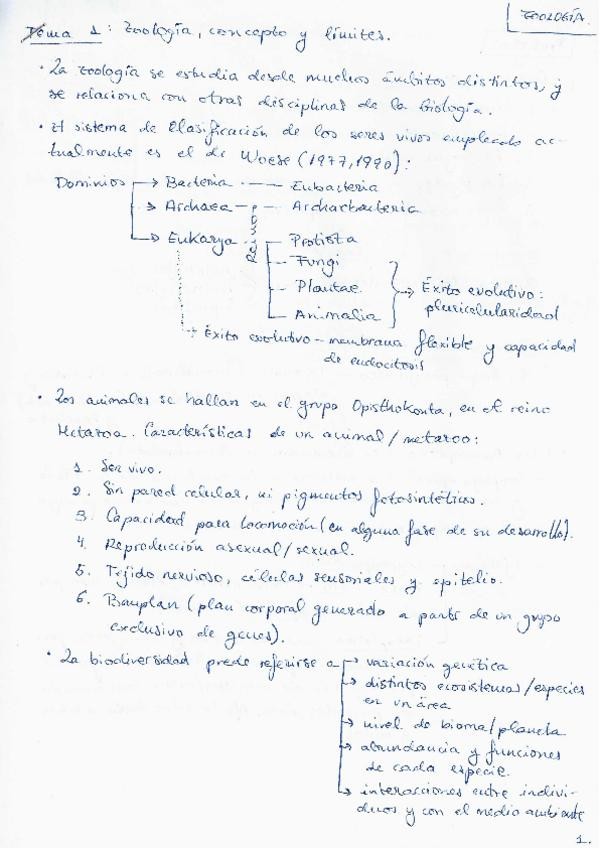 ZOOLOGÍA
Tema 1: Zoología, concepto y límites.
· La zoología se estudia desde muchos ámbitos distintos, y
se relaciona con otras disciplinas de la biología.
· El sistema de clasificación de los seres vivos empleado ac-
tualmente es el de Woese (1977, 1990):
Dominios → Bacteria — Eubacteria
→ Archaea — Archaebacteria
→ Eukarya Reinos Protista
Fungi
Plantae → Éxito evolutivo:
pluricelularidad
Animalia
→ Éxito evolutivo – membrana flexible y capacidad
de endocitosis
· Los animales se hallan en el grupo Opisthokonta, en el reino
Metazoa. Características de un animal/metazoo:
1. Ser vivo.
2. Sin pared celular, ni pigmentos fotosintéticos.
3. Capacidad para locomoción (en alguna fase de su desarrollo).
4. Reproducción asexual/sexual.
5. Tejido nervioso, células sensoriales y epitelio.
6. Bauplan (plan corporal generado a partir de un grupo
exclusivo de genes).
· La biodiversidad puede referirse a → variación genética
→ distintos ecosistemas/especies
en un área
→ nivel de bioma/planeta
→ abundancia y funciones
de cada especie.
→ interacciones entre indivi-
duos y con el medio ambiente
1.